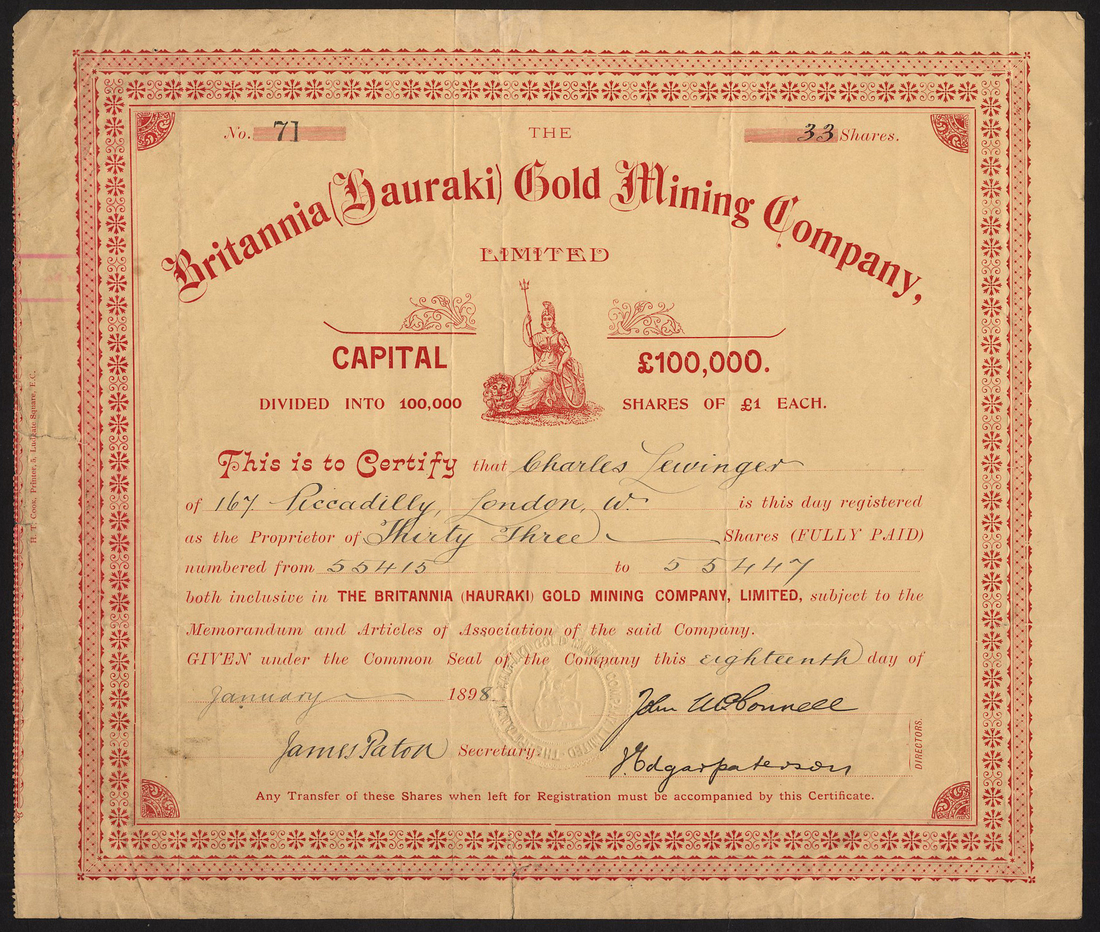 No. 71 THE 33 Shares.
Britannia (Hauraki) Gold Mining Company,
LIMITED
CAPITAL £100,000.
DIVIDED INTO 100,000 SHARES OF £1 EACH.
This is to Certify that Charles Lewinger
of 167. Piccadilly, London, W. is this day registered
as the Proprietor of Thirty Three Shares (FULLY PAID)
numbered from 55415 to 55447
both inclusive in THE BRITANNIA (HAURAKI) GOLD MINING COMPANY, LIMITED, subject to the
Memorandum and Articles of Association of the said Company.
GIVEN under the Common Seal of the Company this eighteenth day of
January 1898.
John McConnell
James Paton Secretary.
J. Edgar Paterson
DIRECTORS.
Any Transfer of these Shares when left for Registration must be accompanied by this Certificate.
H. T. Cook, Printer, 5, Ludgate Square, E.C.